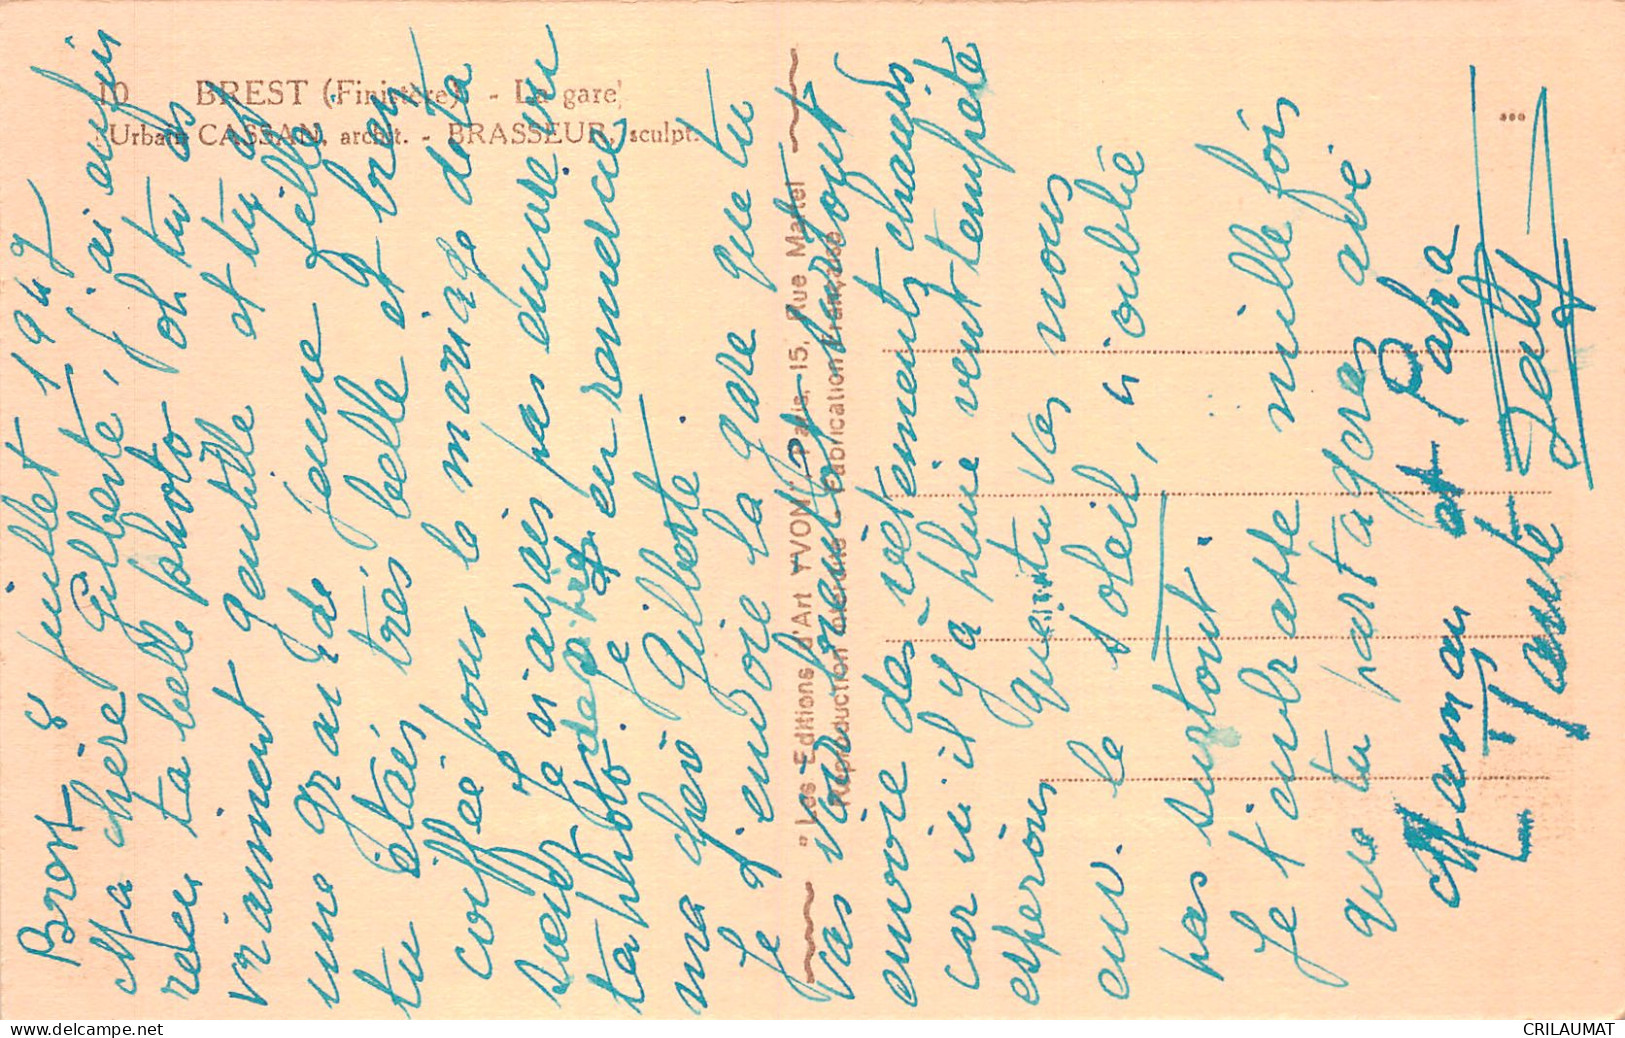 10 BREST (Finistère). - La gare
Urbain CASSAN, archit. - BRASSEUR, sculpt.
"Les Editions d'Art YVON", Paris, 15, Rue Martel
Reproduction interdite - Fabrication Française
Brest 8 juillet 1947
Ma chère Gilberte, j'ai enfin
reçu ta belle photo oh tu es
vraiment gentille et tu as
une grande jeune fille
tu étais très belle et bien
coiffée pour le mariage de ta
soeur je n'avais pas encore vu
ta photo. Je en remercie
ma chère Gilberte.
Je j'envoie la gare que tu
vas voir bientôt surtout
envoie des vêtements chauds
car ici il y a pluie vent tempête
espérons que tu vas nous
env. le soleil, n'oublié
pas surtout.
Je t'embrasse mille fois
que tu partageras avé
Maman et Papa
Tante